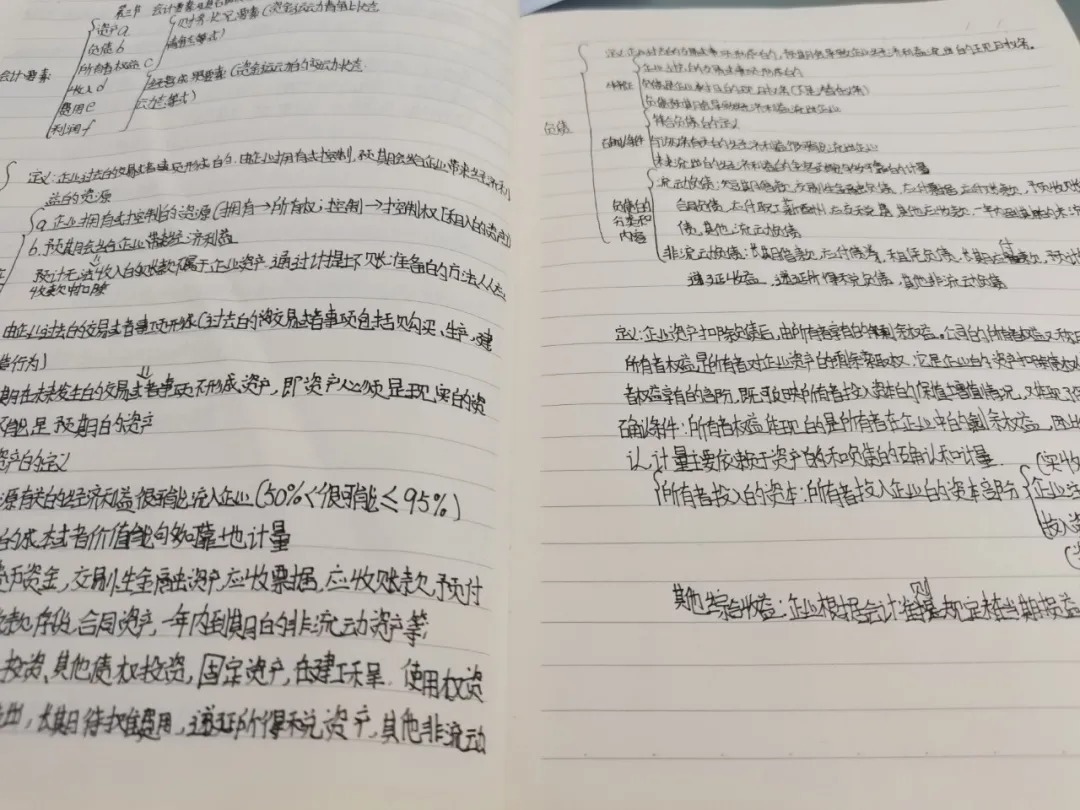 第二节 会计要素及其
会计要素
资产a
负债b
所有者权益c
收入d
费用e
利润f
财务状况要素(资金运动静态状态
静态等式)
经营成果要素(资金运动的动态状态
动态等式)
定义:企业过去的交易或者事项形成的,由企业拥有或控制,预期会给企业带来经济利
益的资源
a.企业拥有或控制的资源(拥有→所有权;控制→控制权【租入的资产】
b.预期会给企业带来经济利益
预计无法收入的账款不属于企业资产,通过计提坏账准备的方法从
收款中扣除
由企业过去的交易或者事项形成(过去的交易或者事项包括购买、生产,建
造行为)
期在未来发生的交易或者事项不形成资产,即资产必须是现实的资
不能是预期的资产
资产的定义
源有关的经济利益很可能流入企业(50%<很可能≤95%)
的成本或者价值能够可靠地计量
货币资金,交易性金融资产,应收票据,应收账款,预付
款,存货,合同资产,一年内到期的非流动资产等;
投资、其他债权投资,固定资产,在建工程,使用权资
长期待摊费用,递延所得税资产,其他非流动
负债
定义:企业过去的交易或事项形成的,预期会导致经济利益流出的现时义务。
特征
负债是企业承担的现时义务
负债预期会导致经济利益流出企业
确认条件
符合负债的定义
与该义务有关的经济利益很可能流出企业
未来流出的经济利益的金额能够可靠的计量
负债的
分类和
内容
流动负债:短期借款,交易性金融负债,应付票据,应付账款,预收账
合同负债,应付职工薪酬,应交税费,其他应付款,一年内到期的非流
债,其他流动负债
非流动负债:长期借款,应付债券,租赁负债,长期应付款,预计
递延收益,递延所得税负债,其他非流动负债
定义:企业资产扣除负债后,由所有者享有的剩余权益,公司的所有者权益又称
所有者权益是所有者对企业资产的剩余索取权,它是企业的资产扣除债权
者权益享有的部分,既可反映所有者投入资本的保值增值情况,又体现了
确认条件:所有者权益体现的是所有者在企业中的剩余权益,因此
认、计量主要依赖于资产的和负债的确认和计量
所有者投入的资本:所有者投入企业的资本部分
(实收
企业
投入
其他综合收益:企业根据会计准则规定未在当期损益